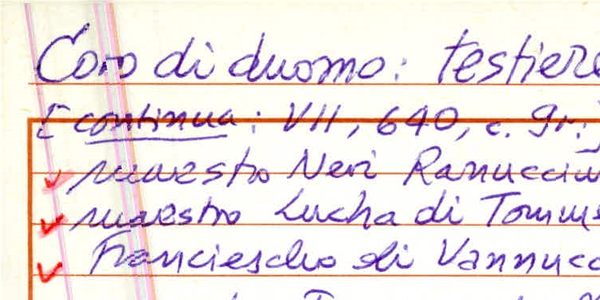 Coro di duomo: testiere
[continua: VII, 640, c. 9r.]
maestro Neri Ranucciu
maestro Lucha di Tomm
Franciescho di Vannucc